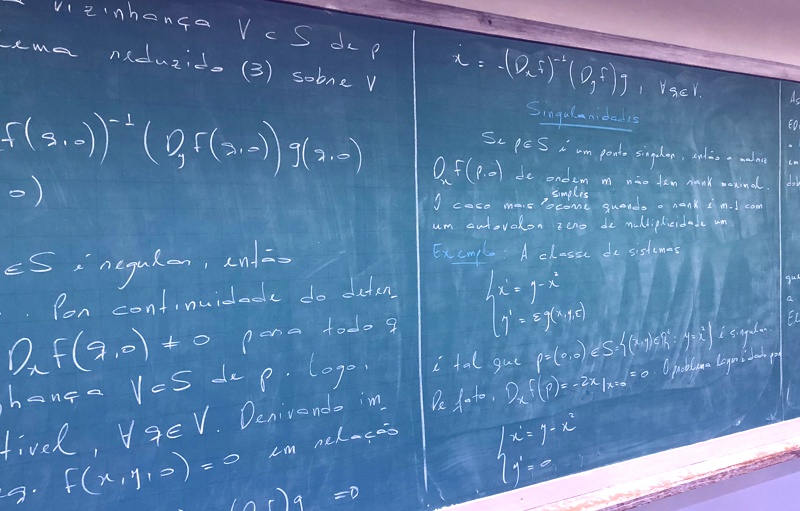 vizinhança V ⊂ S de p
reduzido (3) sobre V
f(q,0))⁻¹ (D_y f(q,0)) g(q,0)
0)
∈ S é regular, então
. Por continuidade do deter-
D_x f(q,0) ≠ 0 para todo q
V ⊂ S de p. Logo,
, ∀ q ∈ V. Derivando im-
f(x,y,0) = 0 em relação
g = 0
ẋ = -(D_x f)⁻¹ (D_y f) g, ∀ q ∈ V.
Singularidades
Se p ∈ S é um ponto singular, então a matriz
D_x f(p,0) de ordem m não tem rank maximal.
O caso mais simples ocorre quando o rank é m-1 com
um autovalor zero de multiplicidade um
Exemplo: A classe de sistemas
{ x' = y - x²
y' = εg(x,y,ε)
é tal que p = (0,0) ∈ S = {(x,y) ∈ ℝ²: y = x²} é singular.
De fato, D_x f(p) = -2x|x=0 = 0. O problema layer é dado por
{ x' = y - x²
y' = 0